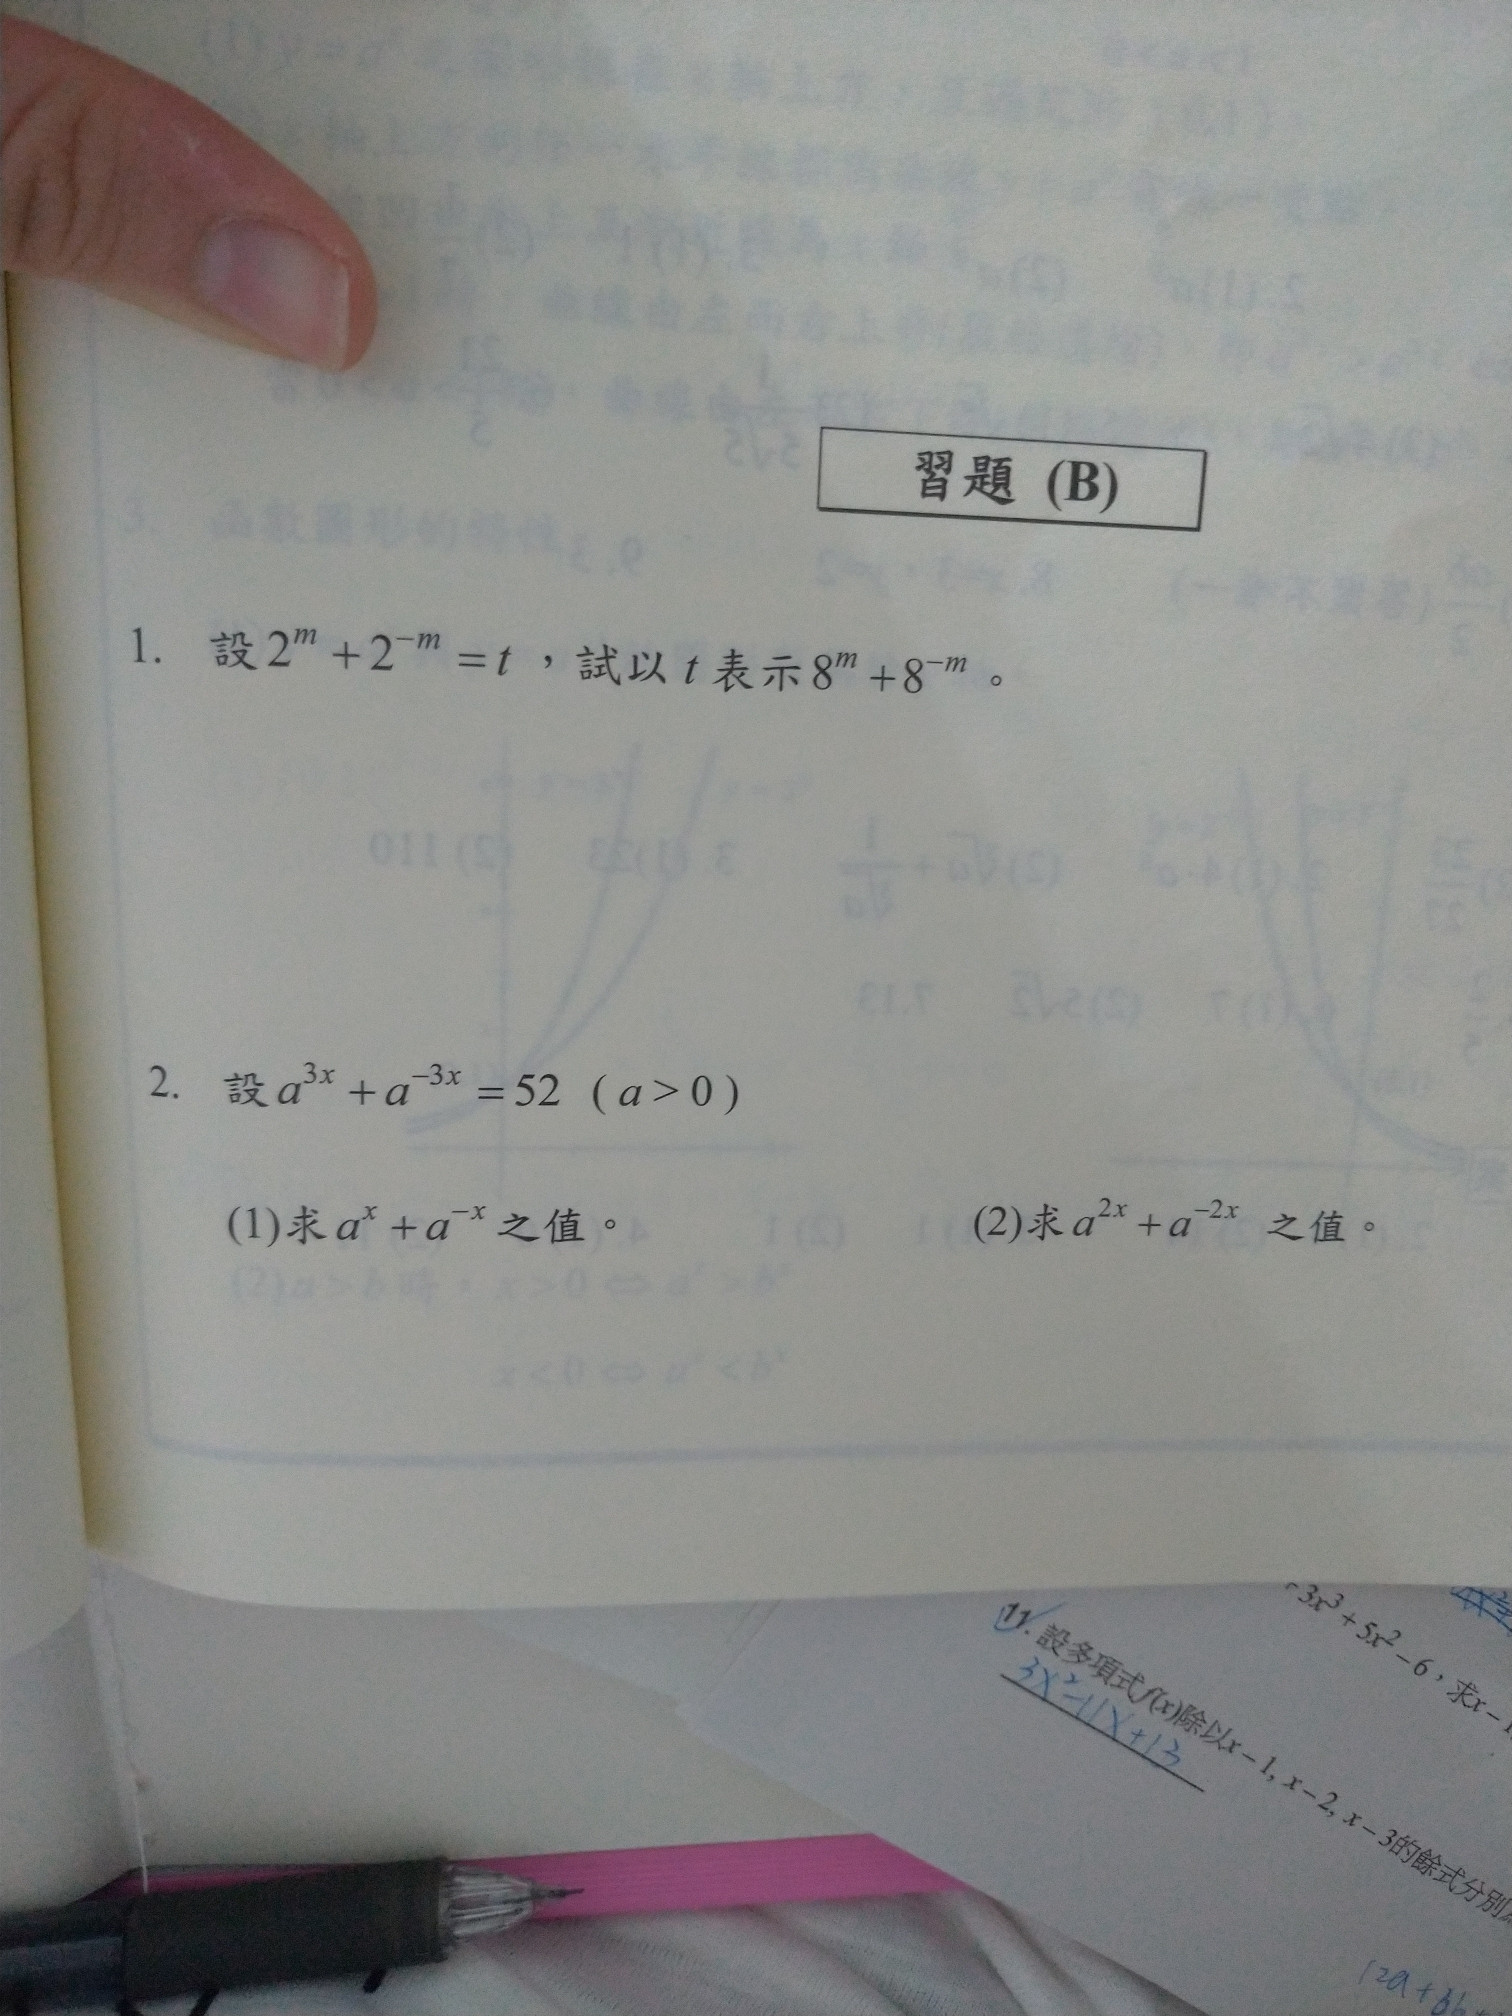 習題 (B)
1. 設 2^m + 2^{-m} = t ，試以 t 表示 8^m + 8^{-m} 。
2. 設 a^{3x} + a^{-3x} = 52 ( a > 0 )
(1)求 a^x + a^{-x} 之值。 (2)求 a^{2x} + a^{-2x} 之值。
3x^3 + 5x^2 - 6，求x -
11. 設多項式f(x)除以x - 1, x - 2, x - 3的餘式分別
3x^2-11x+13